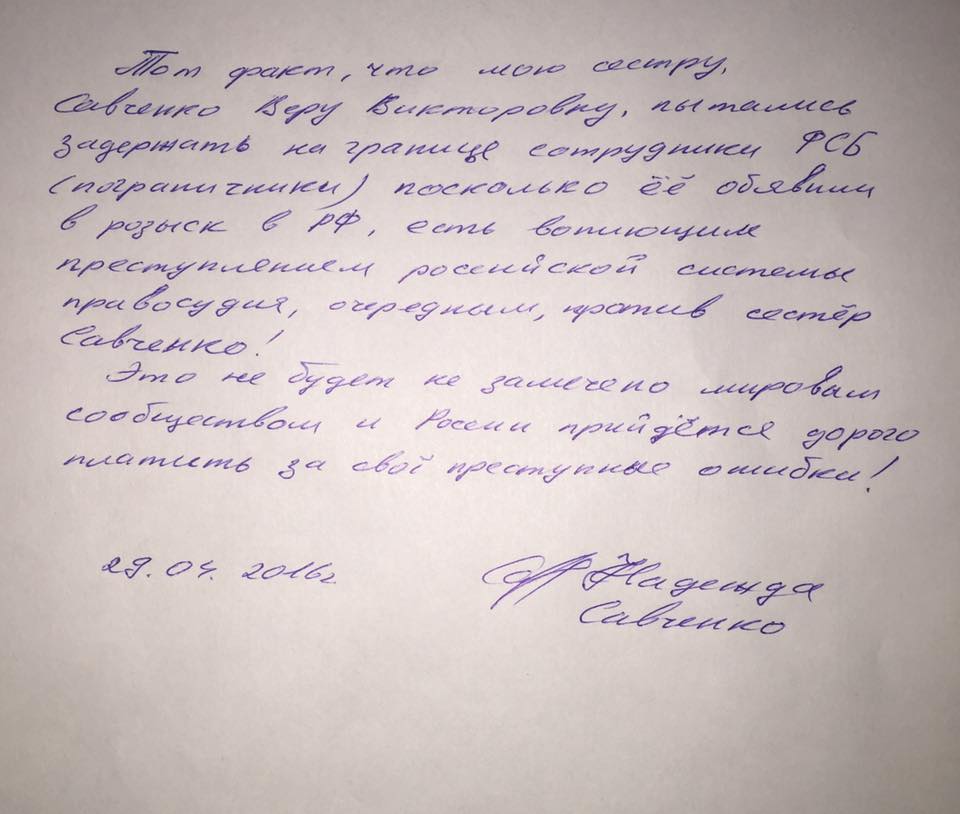 Тот факт, что мою сестру,
Савченко Веру Викторовну, пытались
задержать на границе сотрудники ФСБ
(пограничники) поскольку её обявили
в розыск в РФ, есть вопиющим
преступлением российской системы
правосудия, очередным, против сестёр
Савченко!
Это не будет не замечено мировым
сообществом и России прийдётся дорого
платить за свої преступные ошибки!
29.04.2016г. Надежда
Савченко